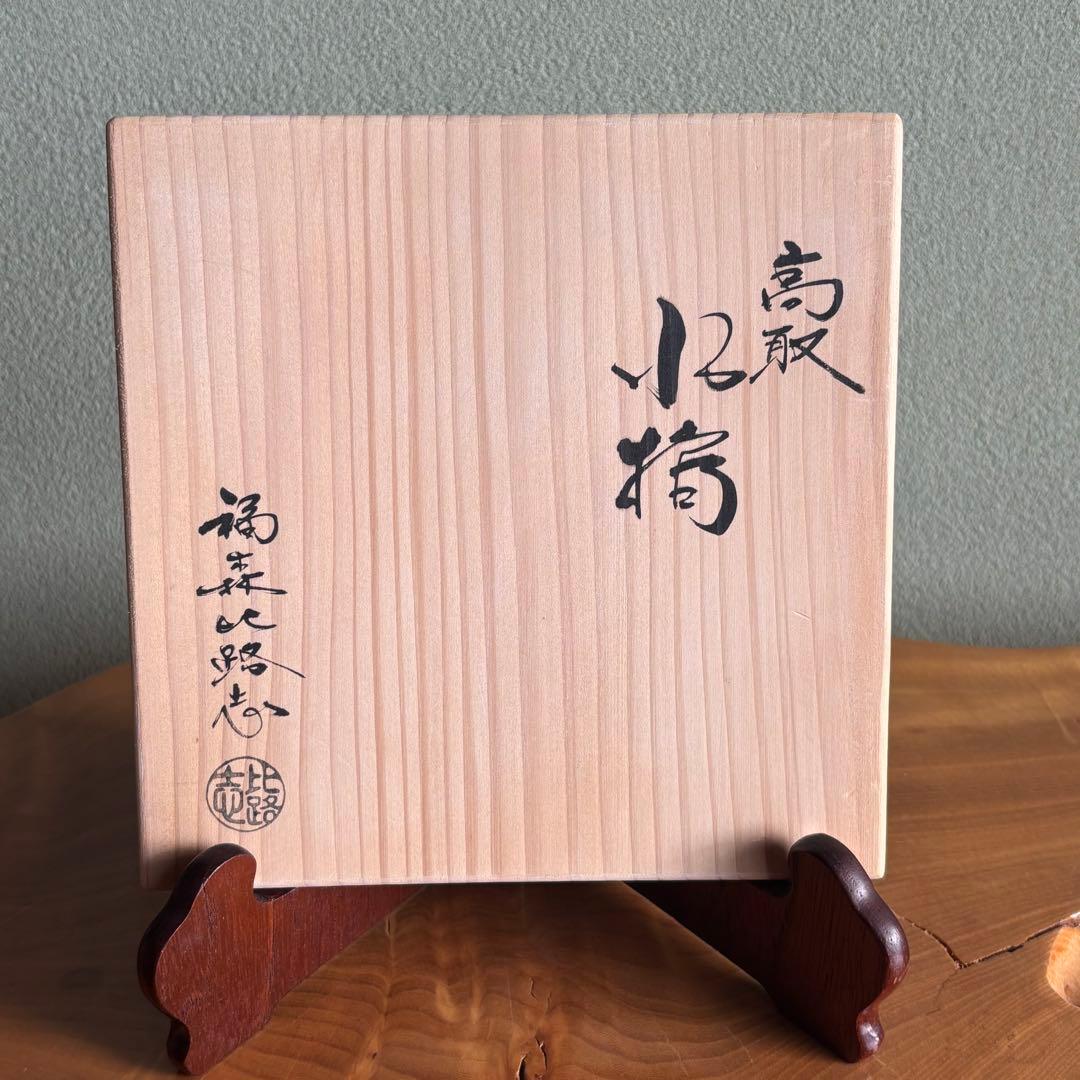 高取
水指
福森比路志
比路志